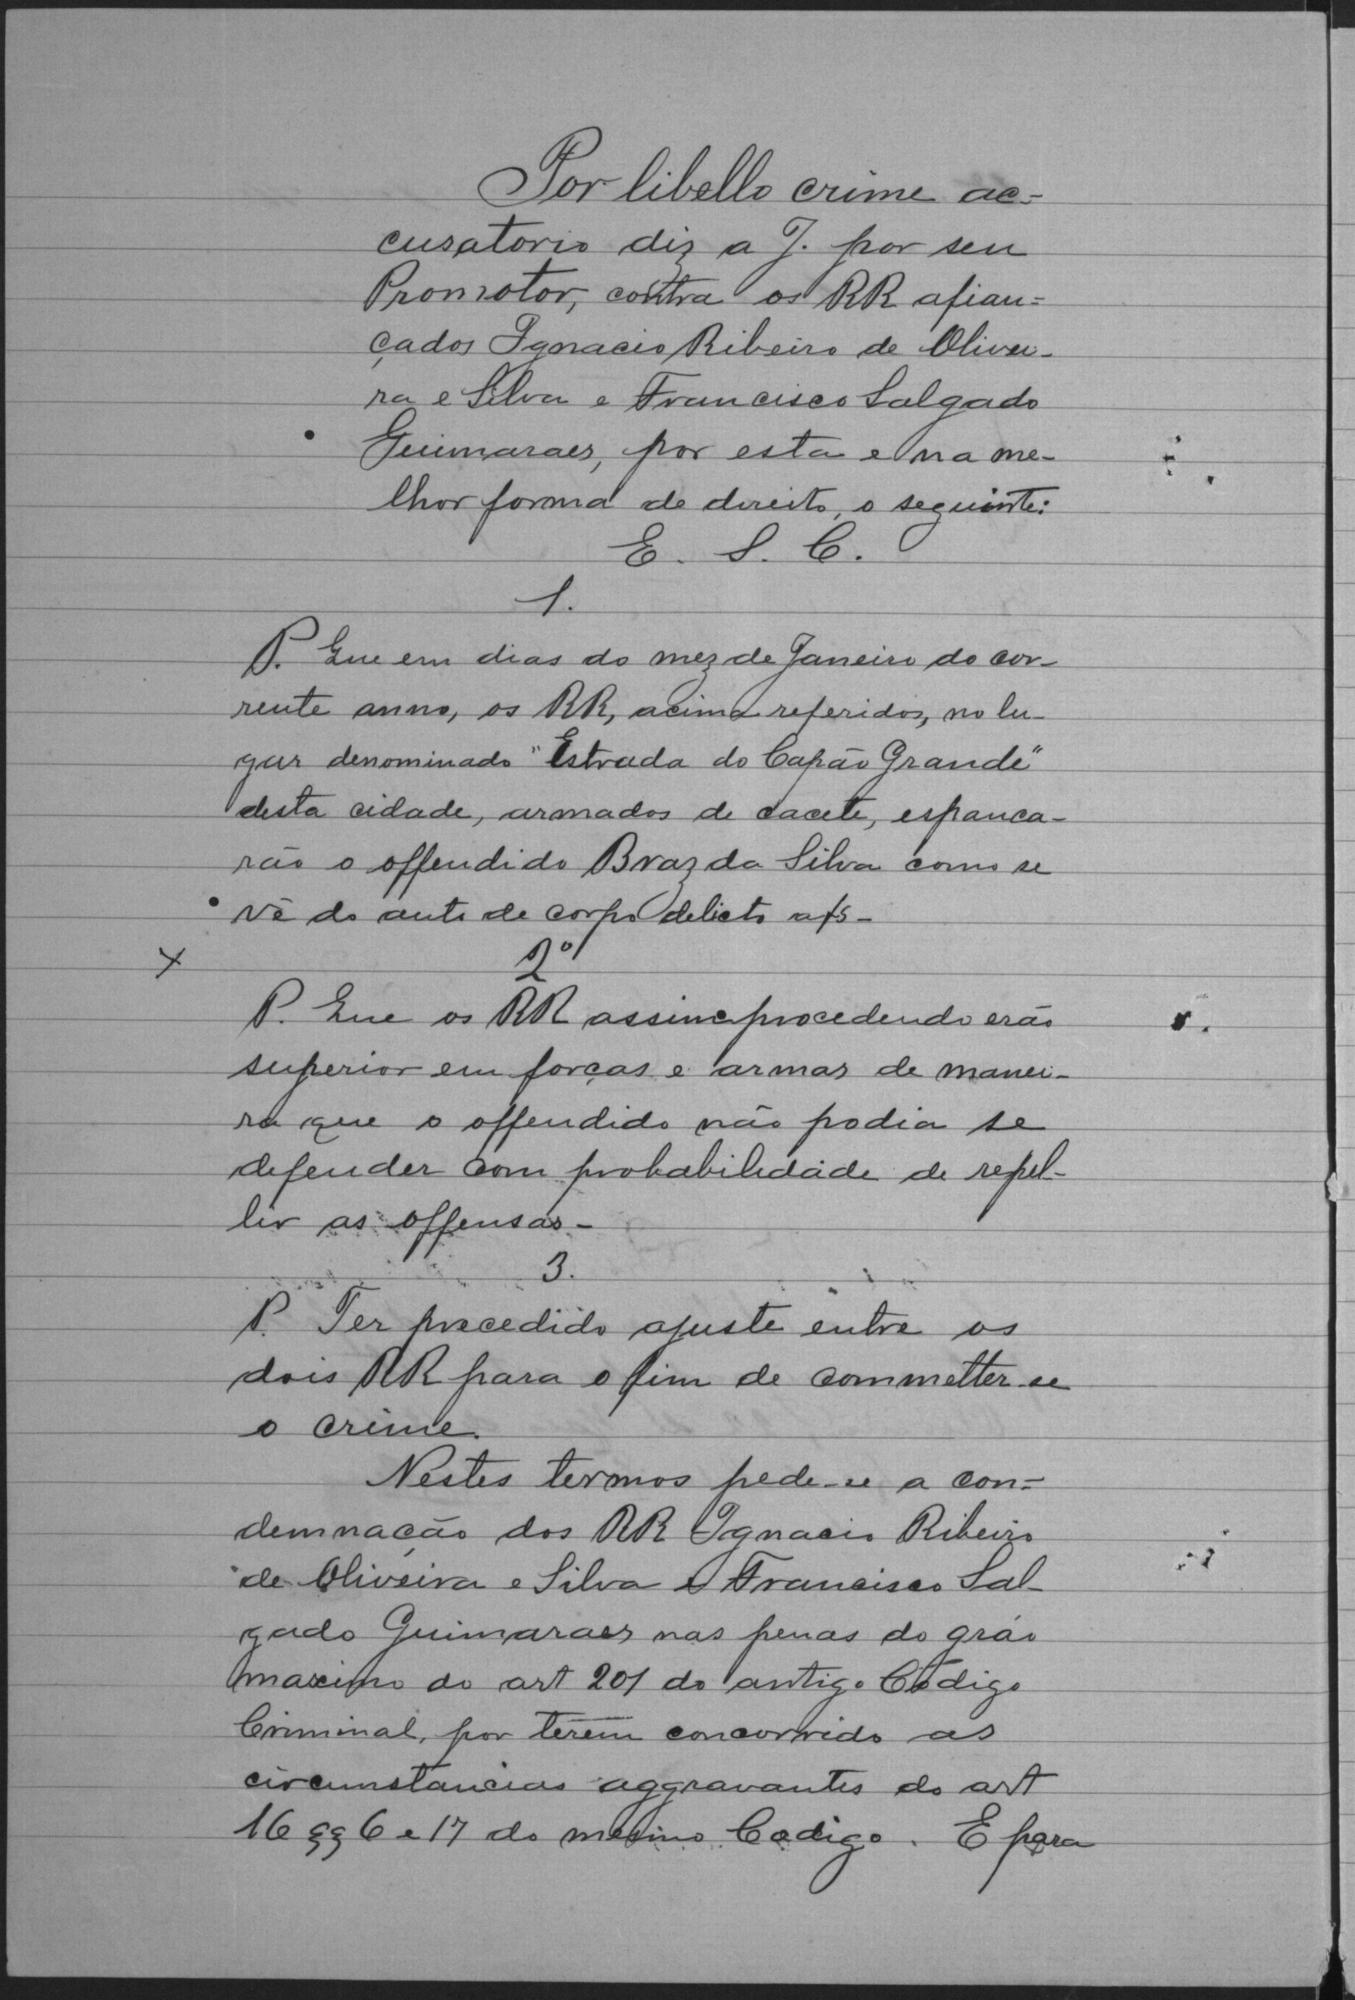 Por libello crime ac=
cusatorio diz a J. por seu
Promotor, contra os RR afian=
çados Ignacio Ribeiro de Olivei-
ra e Silva e Francisco Salgado
Guimaraes, por esta e na me-
lhor forma de direito, o seguinte:
E. S. C.
1.
P. Que em dias do mez de Janeiro do cor-
rente anno, os RR, acima referidos, no lu-
gar denominado "Estrada do Capão Grande"
desta cidade, armados de cacete, espanca-
rão o offendido Braz da Silva como se
vê do auto de corpo delicto a fs -
2º
P. Que os RR assim procedendo erão
superior em forças e armas de manei-
ra que o offendido não podia se
defender com probabilidade de repel-
lir as offensas -
3.
P. Ter precedido ajuste entre os
dois RR para o fim de commetter-se
o crime.
Nestes termos pede-se a con=
demnação dos RR Ignacio Ribeiro
de Oliveira e Silva e Francisco Sal-
gado Guimaraes nas penas do gráo
maximo do art 201 do antigo Codigo
Criminal, por terem concorrido as
circumstancias aggravantes do art
16 §§ 6 e 17 do mesmo Codigo. E para